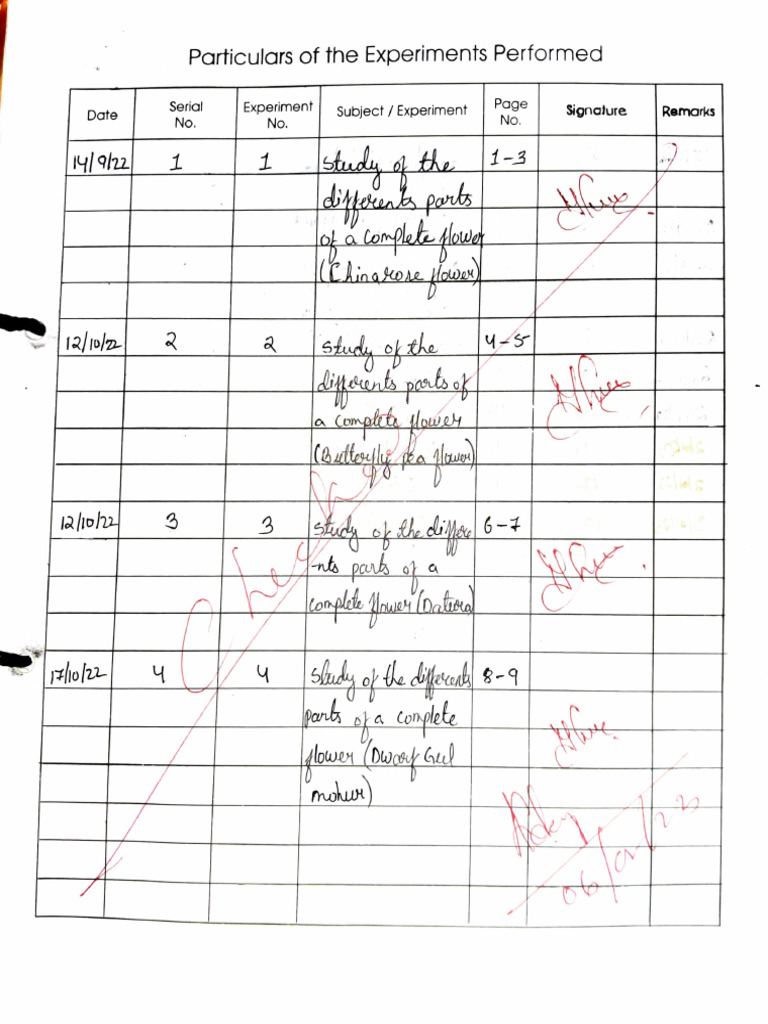 Particulars of the Experiments Performed
Date Serial No. Experiment No. Subject / Experiment Page No. Signature Remarks
14/9/22 1 1 study of the 1-3
differents parts
of a complete flower
(Chinarose flower)
12/10/22 2 2 study of the 4-5
differents parts of
a complete flower
(Butterfly pea flower)
12/10/22 3 3 study of the differe 6-7
-nts parts of a
complete flower (Datura)
17/10/22 4 4 study of the differents 8-9
parts of a complete
flower (Dwarf Gul
mohur)
Checked